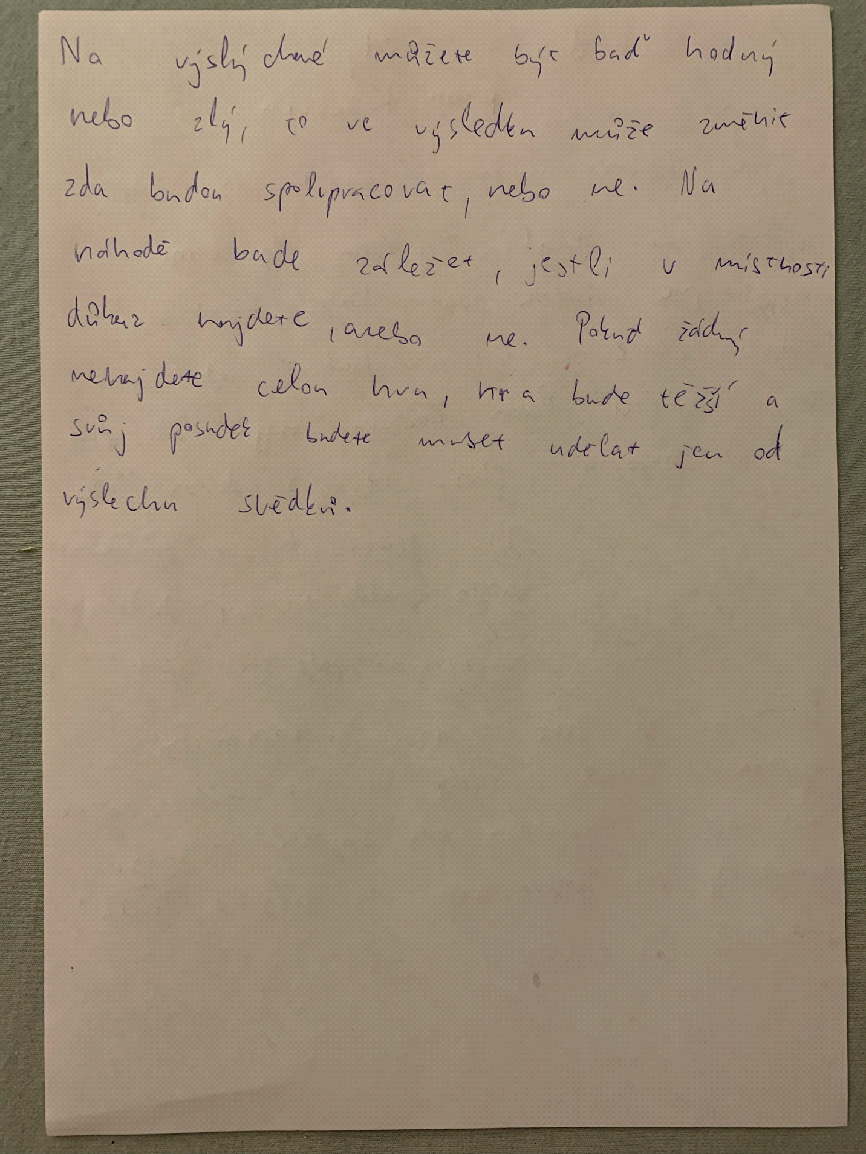 Na výslýchané můžete být baď hodný
nebo zlý, to ve výsledku může změnit
zda budou spolupracovat, nebo ne. Na
náhodě bude záležet, jestli v místnosti
důkaz najdete, anebo ne. Pokud žádný
nenajdete celou hru, hra bude těžší a
svůj posudek budete muset udělat jen od
výslechu svědků.